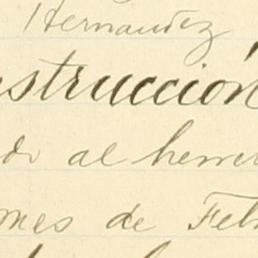 Hernandez
strucción
do al herre
mes de Feb